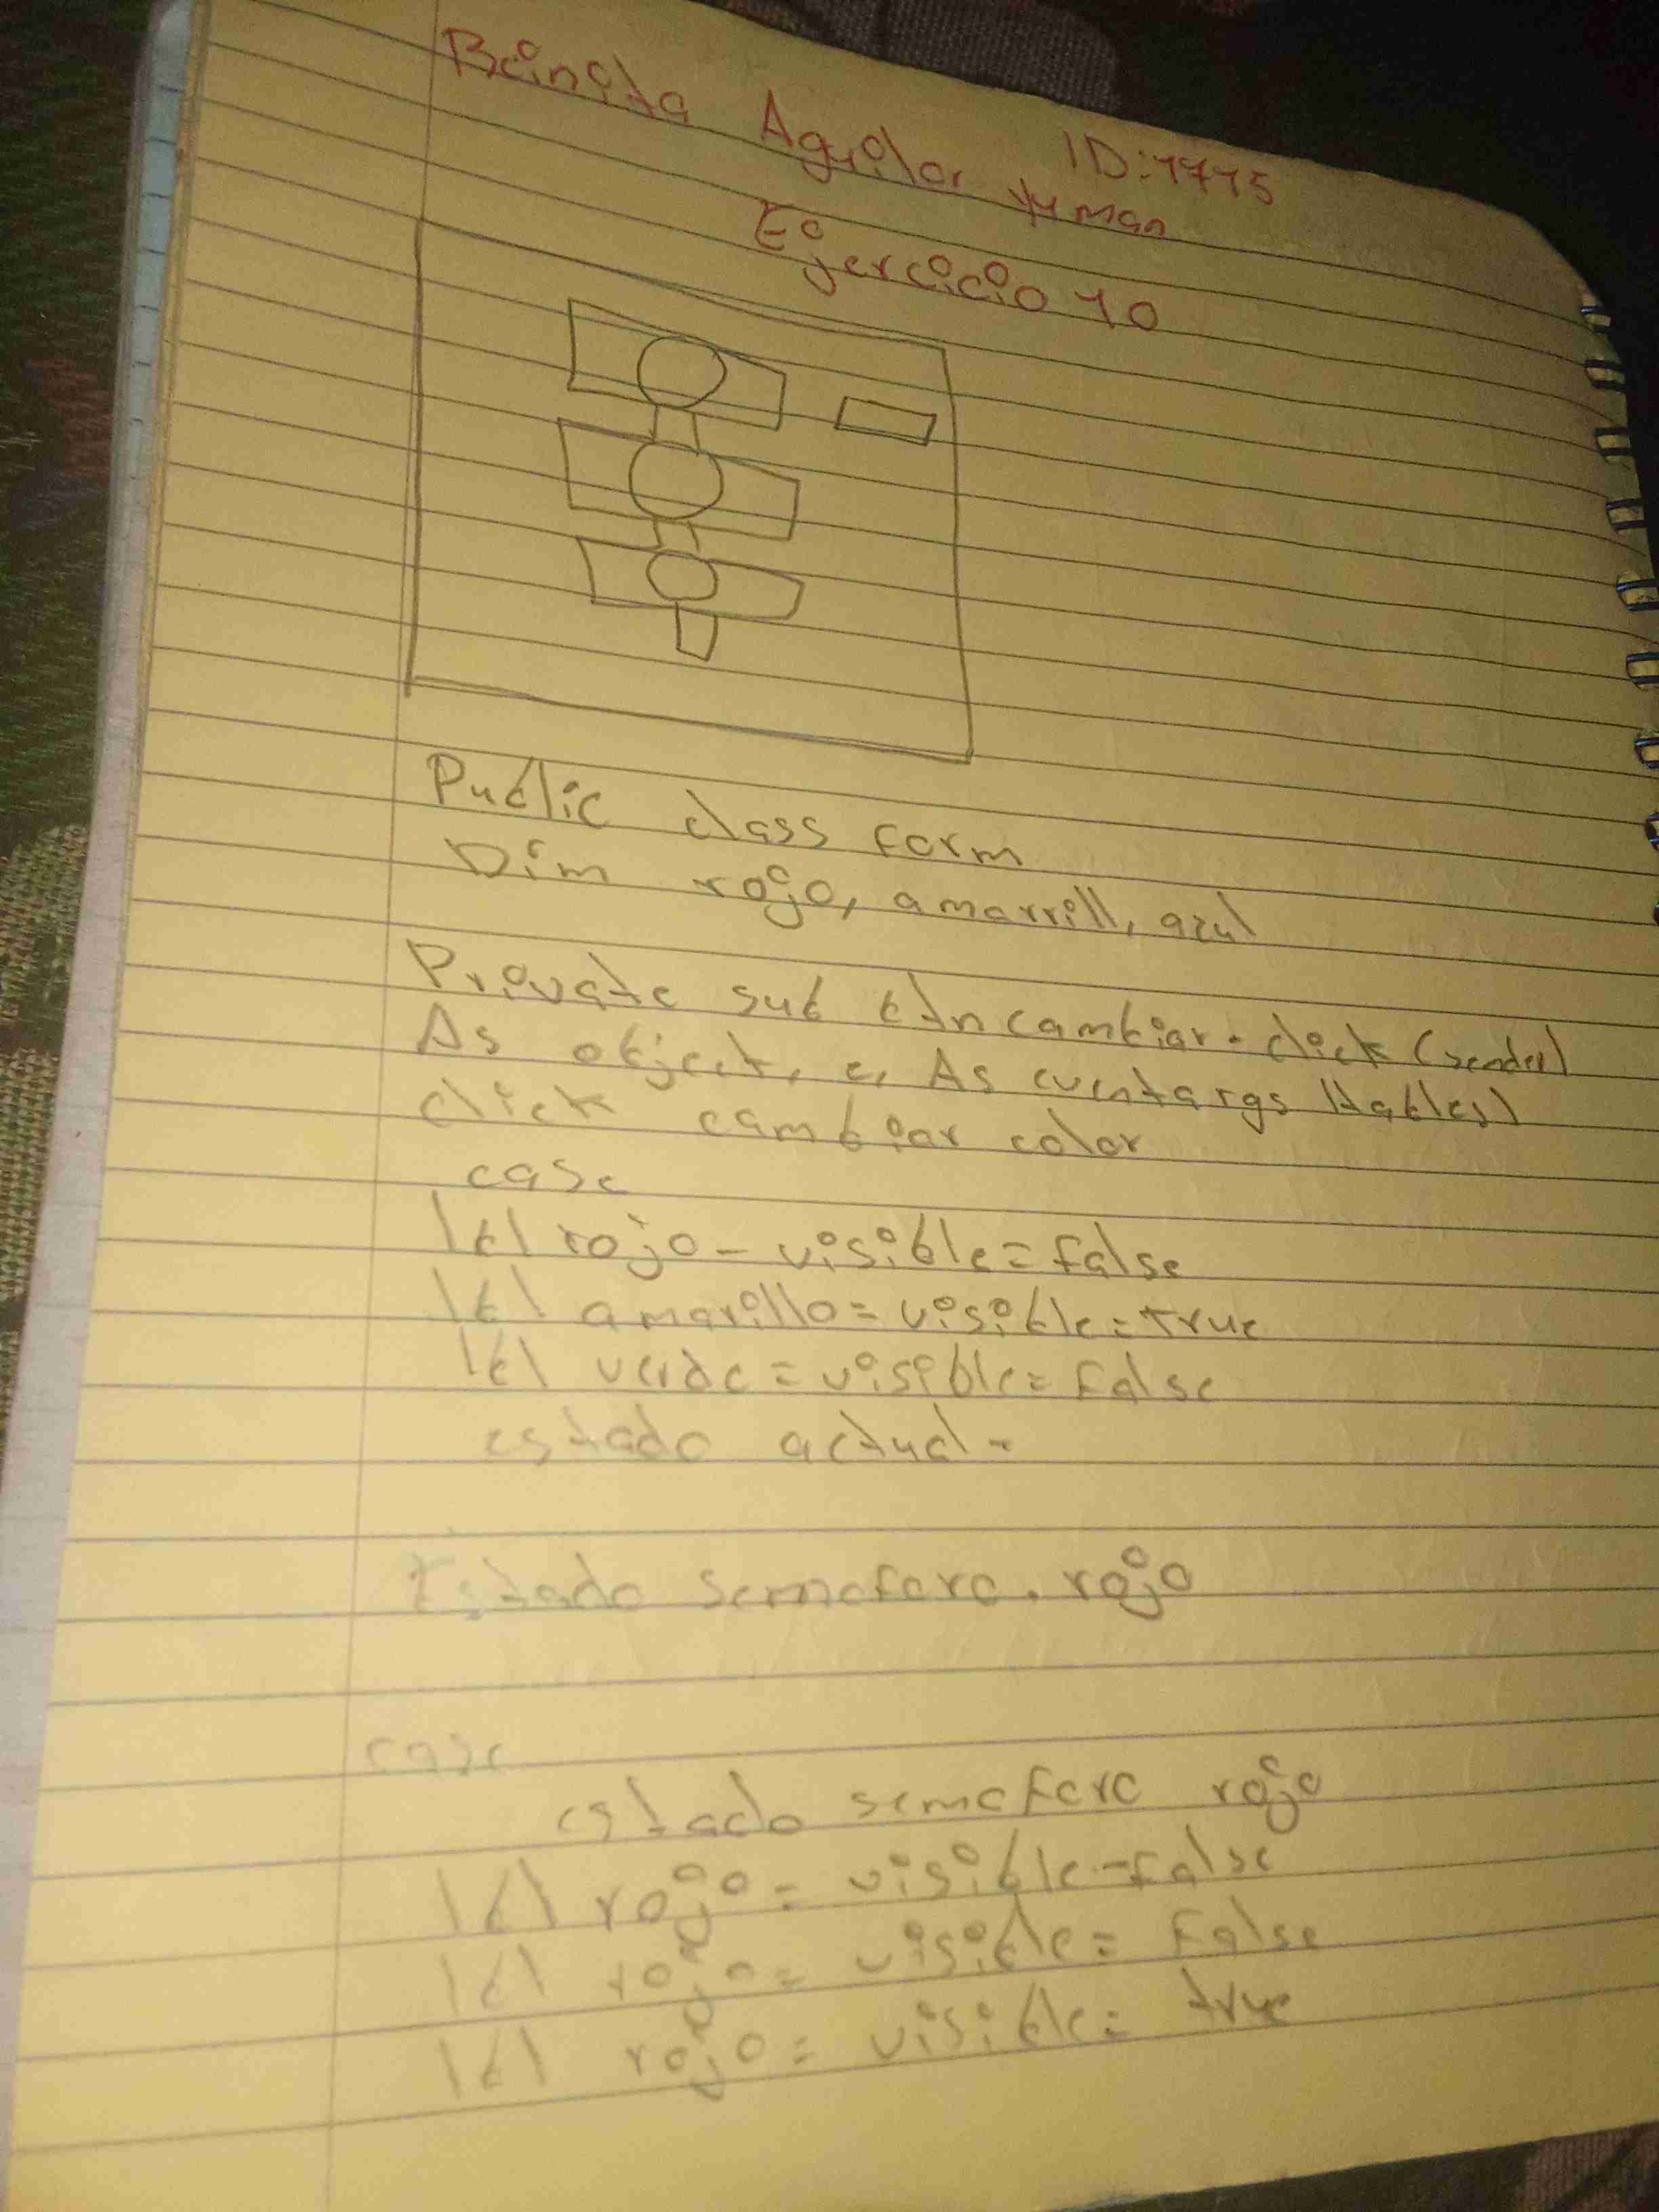 Benita Aguilar yuman ID:1775
Ejercicio 10
Public class form
Dim rojo, amarrill, azul
Private sub btn cambiar - click (sender)
As object, e, As eventargs
click cambiar color
case
lbl rojo - visible = false
lbl amarillo = visible = true
lbl verde = visible = false
estado actual -
Estado semaforo . rojo
case
estado semaforo rojo
lbl rojo = visible = false
lbl rojo = visible = false
lbl rojo = visible = true